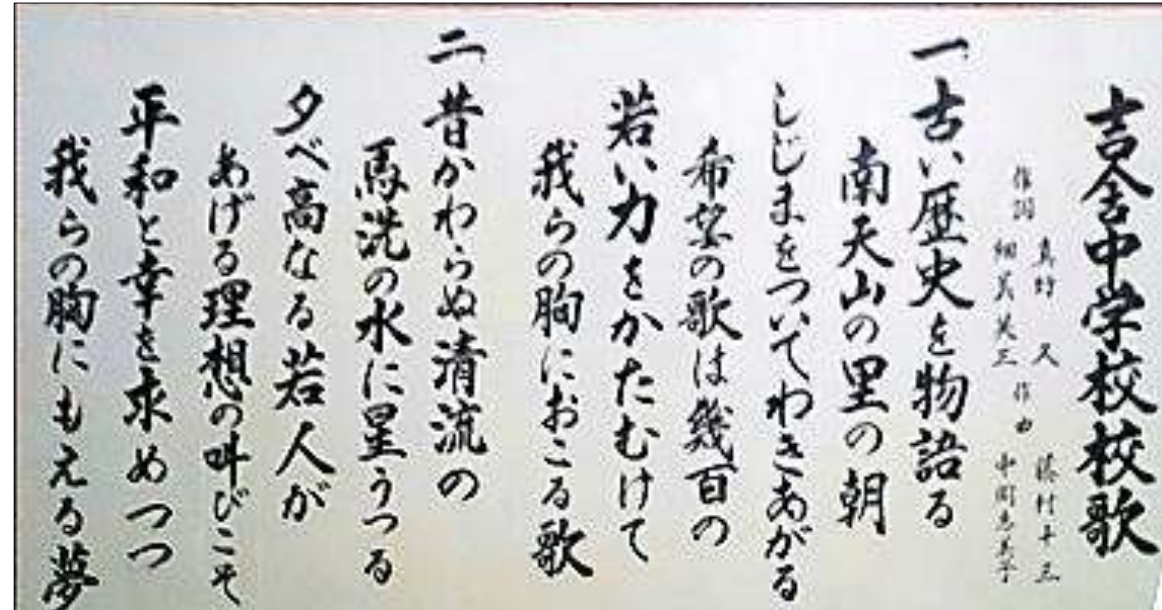 吉舎中学校校歌
作詞
作曲
一 古い歴史を物語る
南天山の里の朝
しじまをついてわきあがる
希望の歌は幾百の
若い力をかたむけて
我らの胸におこる歌
二 昔かわらぬ清流の
馬洗の水に星うつる
夕べ高なる若人が
あげる理想の叫びこそ
平和と幸を求めつつ
我らの胸にもえる夢